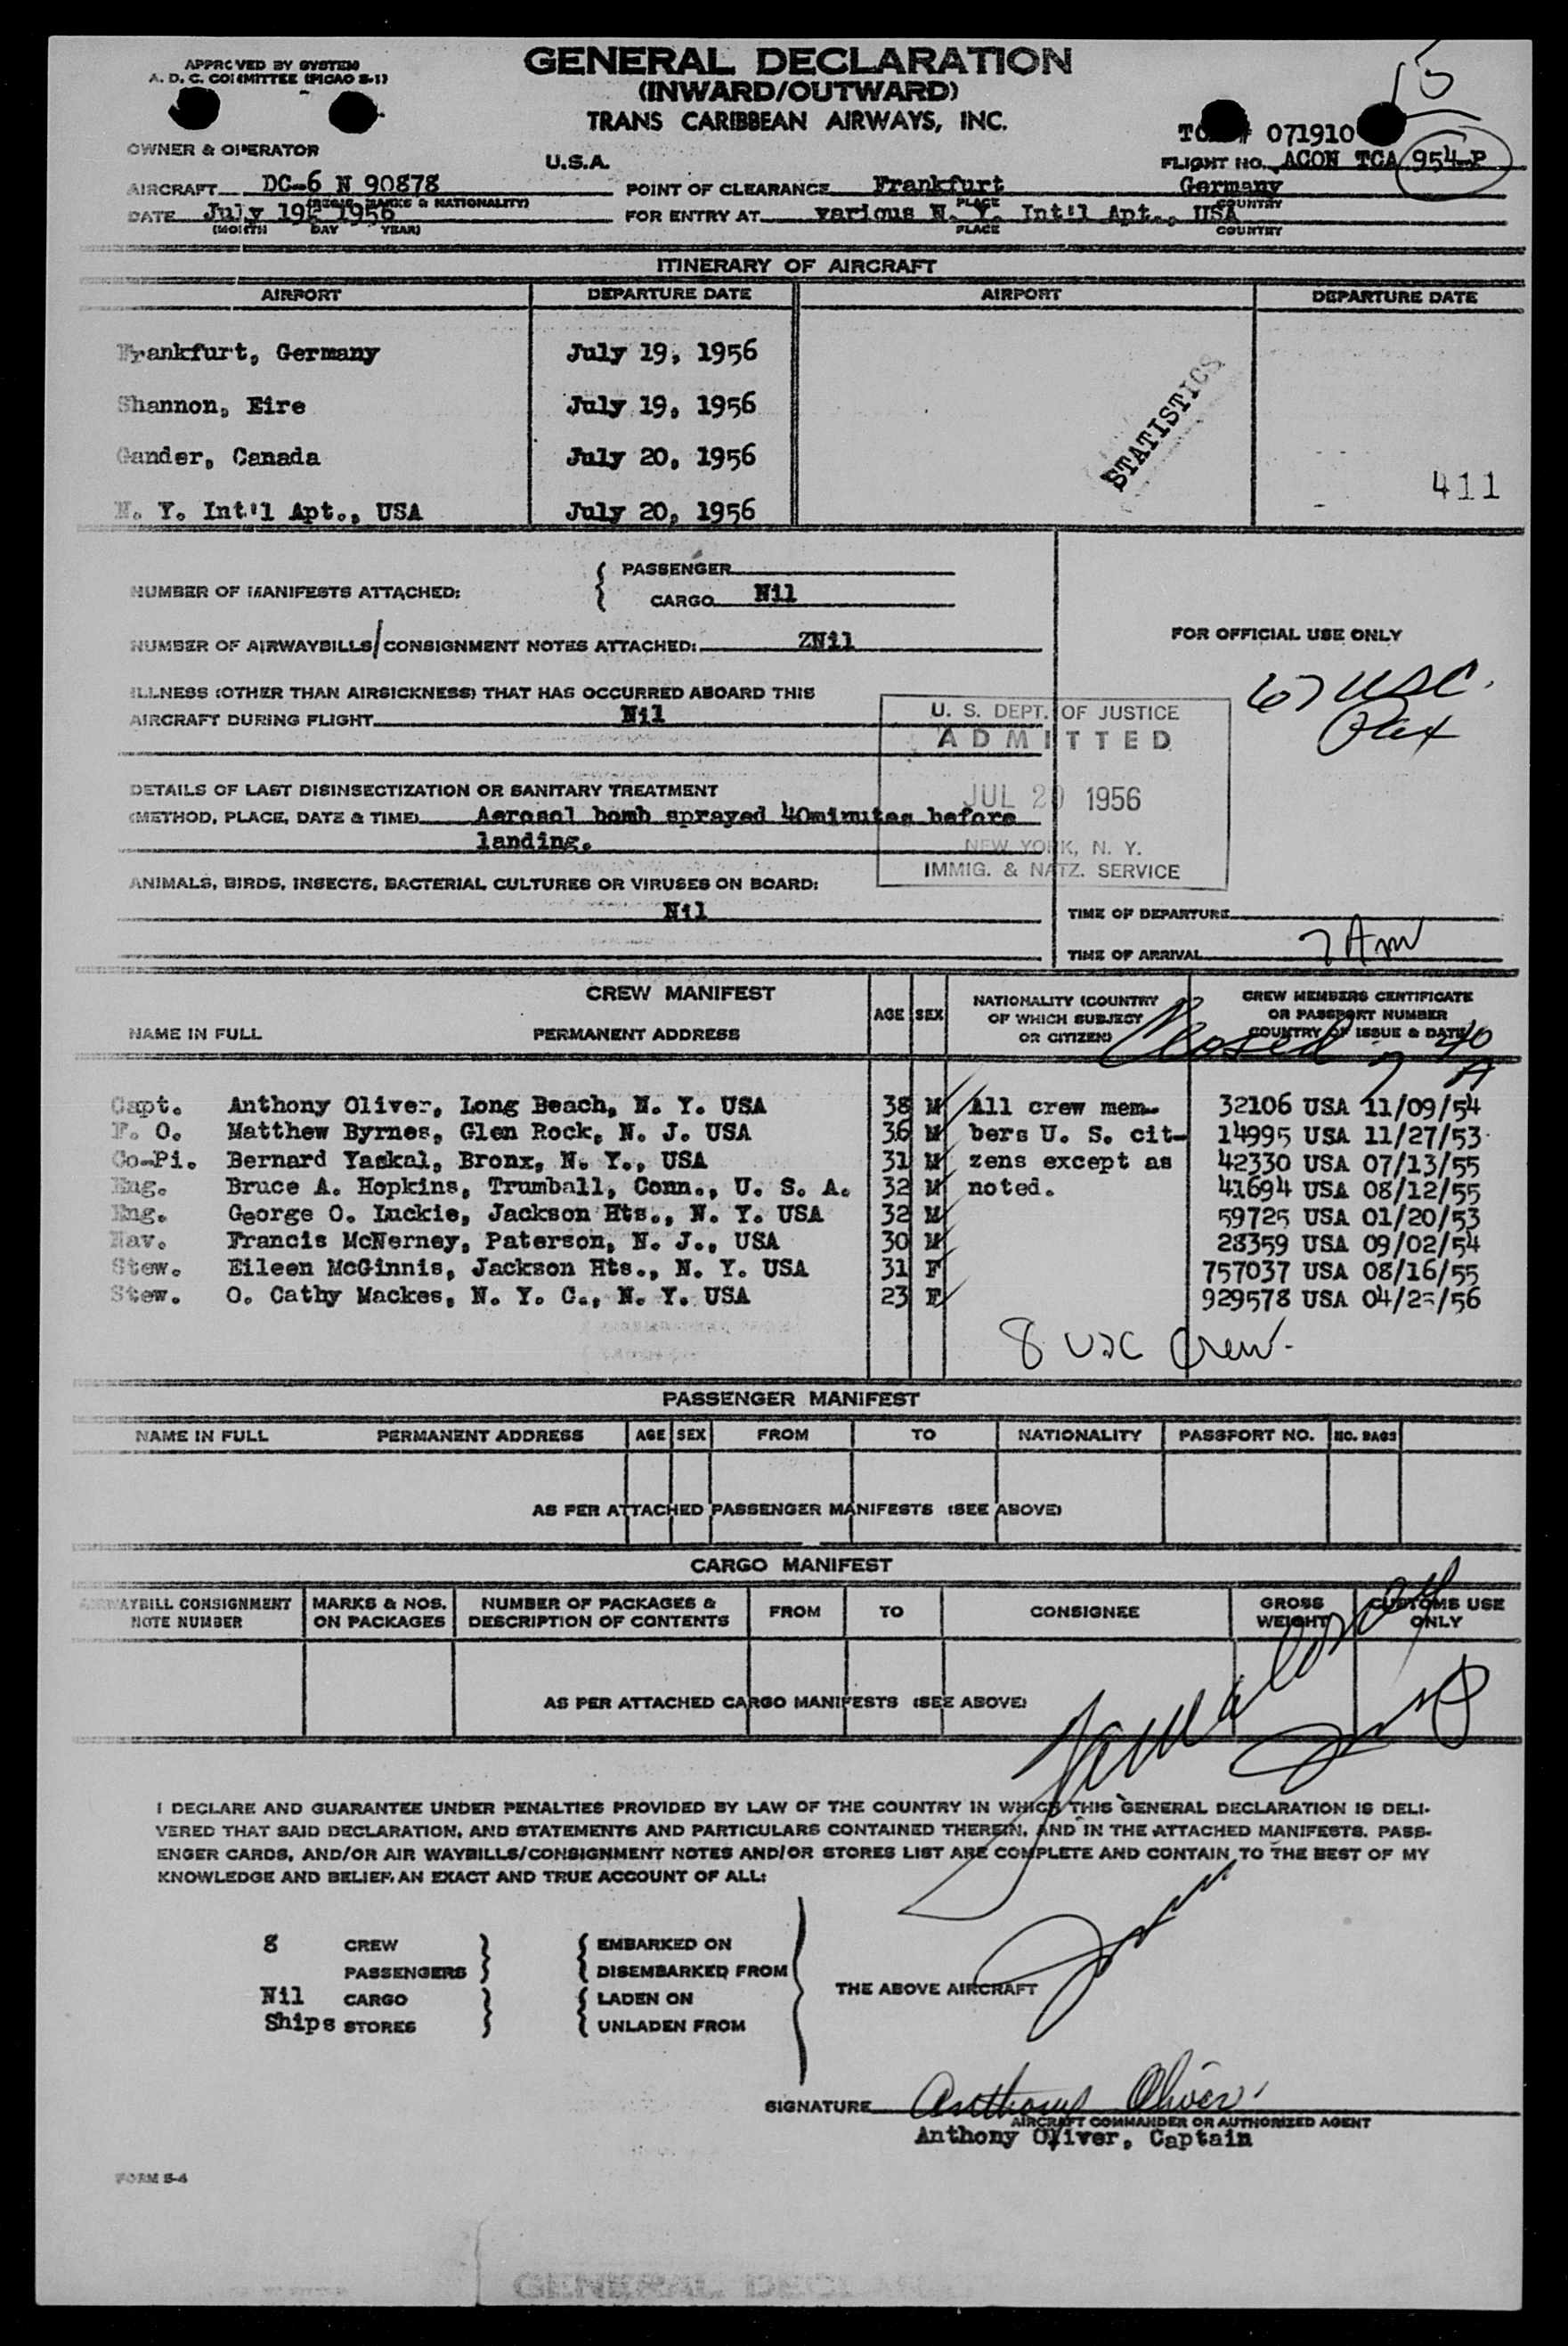 APPROVED BY SYSTEM
A. D. C. COMMITTEE (PICAO S-1)
GENERAL DECLARATION
(INWARD/OUTWARD)
TRANS CARIBBEAN AIRWAYS, INC.
15
# 071910
OWNER & OPERATOR
U.S.A.
FLIGHT NO. ACON TCA 954-P
AIRCRAFT DC-6 N 90878
POINT OF CLEARANCE Frankfurt Germany
(REGIS. MARKS & NATIONALITY)
PLACE COUNTRY
DATE July 19, 1956
FOR ENTRY AT various N. Y. Int'l Apt., USA
(MONTH DAY YEAR)
PLACE COUNTRY
ITINERARY OF AIRCRAFT
AIRPORT DEPARTURE DATE AIRPORT DEPARTURE DATE
Frankfurt, Germany July 19, 1956
Shannon, Eire July 19, 1956
Gander, Canada July 20, 1956
N. Y. Int'l Apt., USA July 20, 1956
STATISTICS
411
NUMBER OF MANIFESTS ATTACHED:
PASSENGER
CARGO Nil
NUMBER OF AIRWAYBILLS/CONSIGNMENT NOTES ATTACHED: ZNil
FOR OFFICIAL USE ONLY
67 USC.
Pax
ILLNESS (OTHER THAN AIRSICKNESS) THAT HAS OCCURRED ABOARD THIS
AIRCRAFT DURING FLIGHT Nil
U. S. DEPT. OF JUSTICE
ADMITTED
JUL 20 1956
NEW YORK, N. Y.
IMMIG. & NATZ. SERVICE
DETAILS OF LAST DISINSECTIZATION OR SANITARY TREATMENT
(METHOD, PLACE, DATE & TIME) Aerosol bomb sprayed 40minutes before
landing.
ANIMALS, BIRDS, INSECTS, BACTERIAL CULTURES OR VIRUSES ON BOARD:
Nil
TIME OF DEPARTURE
TIME OF ARRIVAL 7 Am
CREW MANIFEST
NAME IN FULL PERMANENT ADDRESS AGE SEX
NATIONALITY (COUNTRY
OF WHICH SUBJECT
OR CITIZEN)
CREW MEMBERS CERTIFICATE
OR PASSPORT NUMBER
COUNTRY OF ISSUE & DATE
Closed 7 40 A
Capt. Anthony Oliver, Long Beach, N. Y. USA 38 M All crew mem- 32106 USA 11/09/54
F. O. Matthew Byrnes, Glen Rock, N. J. USA 36 M bers U. S. cit- 14995 USA 11/27/53
Co-Pi. Bernard Yaskal, Bronx, N. Y., USA 31 M zens except as 42330 USA 07/13/55
Eng. Bruce A. Hopkins, Trumball, Conn., U. S. A. 32 M noted. 41694 USA 08/12/55
Eng. George O. Luckie, Jackson Hts., N. Y. USA 32 M 59725 USA 01/20/53
Nav. Francis McNerney, Paterson, N. J., USA 30 M 28359 USA 09/02/54
Stew. Eileen McGinnis, Jackson Hts., N. Y. USA 31 F 757037 USA 08/16/55
Stew. O. Cathy Mackes, N. Y. C., N. Y. USA 23 F 929578 USA
8 USC Crew.
PASSENGER MANIFEST
NAME IN FULL PERMANENT ADDRESS AGE SEX FROM TO NATIONALITY PASSPORT NO. NO. BAGS
AS PER ATTACHED PASSENGER MANIFESTS (SEE ABOVE)
CARGO MANIFEST
AIRWAYBILL CONSIGNMENT
NOTE NUMBER
MARKS & NOS.
ON PACKAGES
NUMBER OF PACKAGES &
DESCRIPTION OF CONTENTS
FROM TO CONSIGNEE
GROSS
WEIGHT
CUSTOMS USE
ONLY
AS PER ATTACHED CARGO MANIFESTS (SEE ABOVE)
I DECLARE AND GUARANTEE UNDER PENALTIES PROVIDED BY LAW OF THE COUNTRY IN WHICH THIS GENERAL DECLARATION IS DELI-
VERED THAT SAID DECLARATION, AND STATEMENTS AND PARTICULARS CONTAINED THEREIN, AND IN THE ATTACHED MANIFESTS. PASS-
ENGER CARDS, AND/OR AIR WAYBILLS/CONSIGNMENT NOTES AND/OR STORES LIST ARE COMPLETE AND CONTAIN TO THE BEST OF MY
KNOWLEDGE AND BELIEF, AN EXACT AND TRUE ACCOUNT OF ALL:
8 CREW
PASSENGERS
Nil CARGO
Ships STORES
EMBARKED ON
DISEMBARKED FROM
LADEN ON
UNLADEN FROM
THE ABOVE AIRCRAFT
SIGNATURE Anthony Oliver
AIRCRAFT COMMANDER OR AUTHORIZED AGENT
Anthony Oliver, Captain
FORM S-4
GENERAL DECLARATION